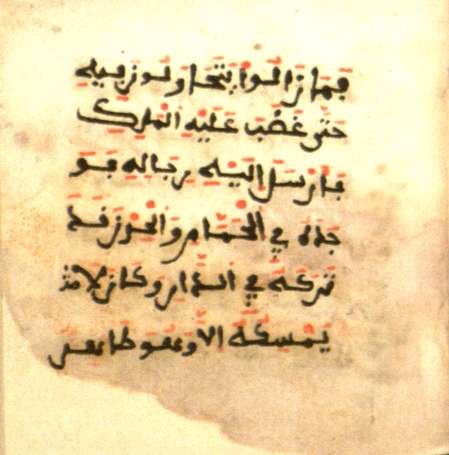 فما زالوا يتحاولون فيه
حتى غضب عليه الملك
فارسل اليه رجاله فو
جده في الحمام والحرز قد
تركه في الدار وكان لا
يمسكه الا وهو طاهر